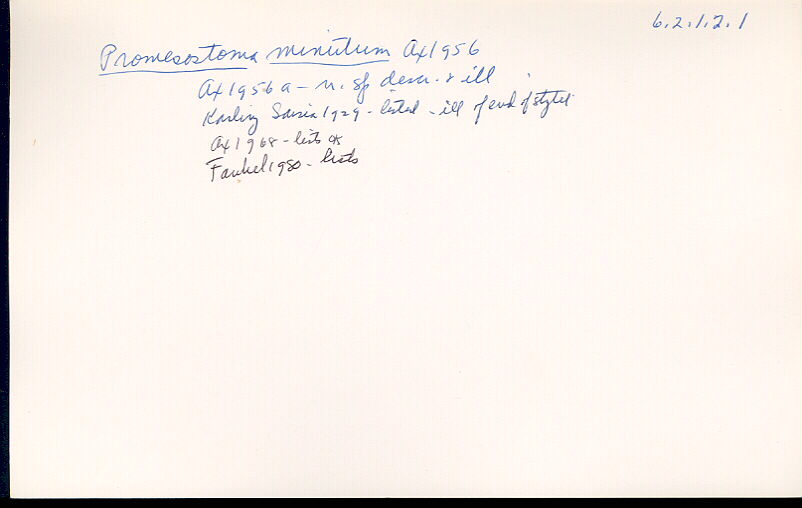 6.2.1.2.1
Promesostoma minutum Ax 1956
Ax 1956a - n. sp descr. & ill
Karling Sarsia 1929 - listed - ill of end of stylet
Ax 1968 - lists
Faubel 1980 - lists